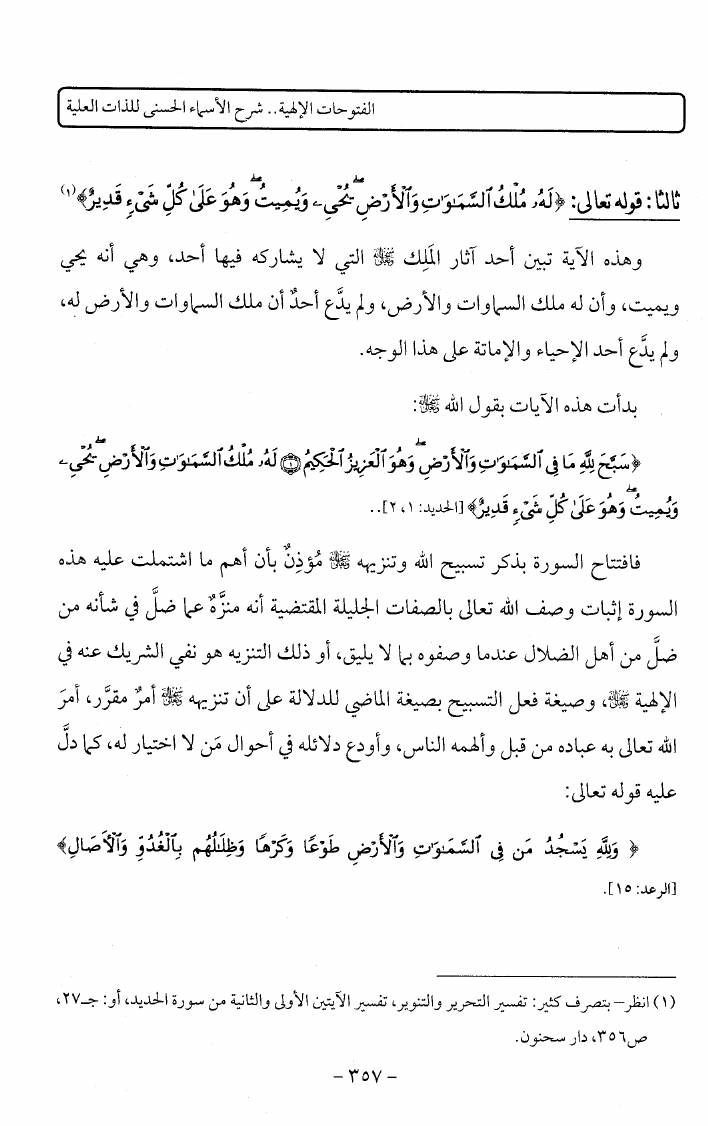 الفتوحات الإلهية.. شرح الأسماء الحسنى للذات العلية
ثالثا: قوله تعالى: ﴿لَهُۥ مُلْكُ ٱلسَّمَٰوَٰتِ وَٱلْأَرْضِ ۖ يُحْىِۦ وَيُمِيتُ ۖ وَهُوَ عَلَىٰ كُلِّ شَىْءٍ قَدِيرٌ﴾(١)
وهذه الآية تبين أحد آثار المَلِك ﷻ التي لا يشاركه فيها أحد، وهي أنه يحي
ويميت، وأن له ملك السماوات والأرض، ولم يدَّع أحدٌ أن ملك السماوات والأرض له،
ولم يدَّع أحد الإحياء والإماتة على هذا الوجه.
بدأت هذه الآيات بقول الله ﷻ:
﴿سَبَّحَ لِلَّهِ مَا فِى ٱلسَّمَٰوَٰتِ وَٱلْأَرْضِ ۖ وَهُوَ ٱلْعَزِيزُ ٱلْحَكِيمُ ۝١ لَهُۥ مُلْكُ ٱلسَّمَٰوَٰتِ وَٱلْأَرْضِ ۖ يُحْىِۦ
وَيُمِيتُ ۖ وَهُوَ عَلَىٰ كُلِّ شَىْءٍ قَدِيرٌ﴾ [الحديد: ١، ٢]..
فافتتاح السورة بذكر تسبيح الله وتنزيهه ﷻ مُؤذِنٌ بأن أهم ما اشتملت عليه هذه
السورة إثبات وصف الله تعالى بالصفات الجليلة المقتضية أنه منزَّهٌ عما ضلَّ في شأنه من
ضلَّ من أهل الضلال عندما وصفوه بما لا يليق، أو ذلك التنزيه هو نفي الشريك عنه في
الإلهية ﷻ، وصيغة فعل التسبيح بصيغة الماضي للدلالة على أن تنزيهه ﷻ أمرٌ مقرَّر، أمرَ
الله تعالى به عباده من قبل وألهمه الناس، وأودع دلائله في أحوال مَن لا اختيار له، كما دلَّ
عليه قوله تعالى:
﴿ وَلِلَّهِ يَسْجُدُ مَن فِى ٱلسَّمَٰوَٰتِ وَٱلْأَرْضِ طَوْعًا وَكَرْهًا وَظِلَٰلُهُم بِٱلْغُدُوِّ وَٱلْءَاصَالِ﴾
[الرعد: ١٥].
(١) انظر– بتصرف كثير: تفسير التحرير والتنوير، تفسير الآيتين الأولى والثانية من سورة الحديد، أو: جـ٢٧،
ص٣٥٦، دار سحنون.
- ٣٥٧ -